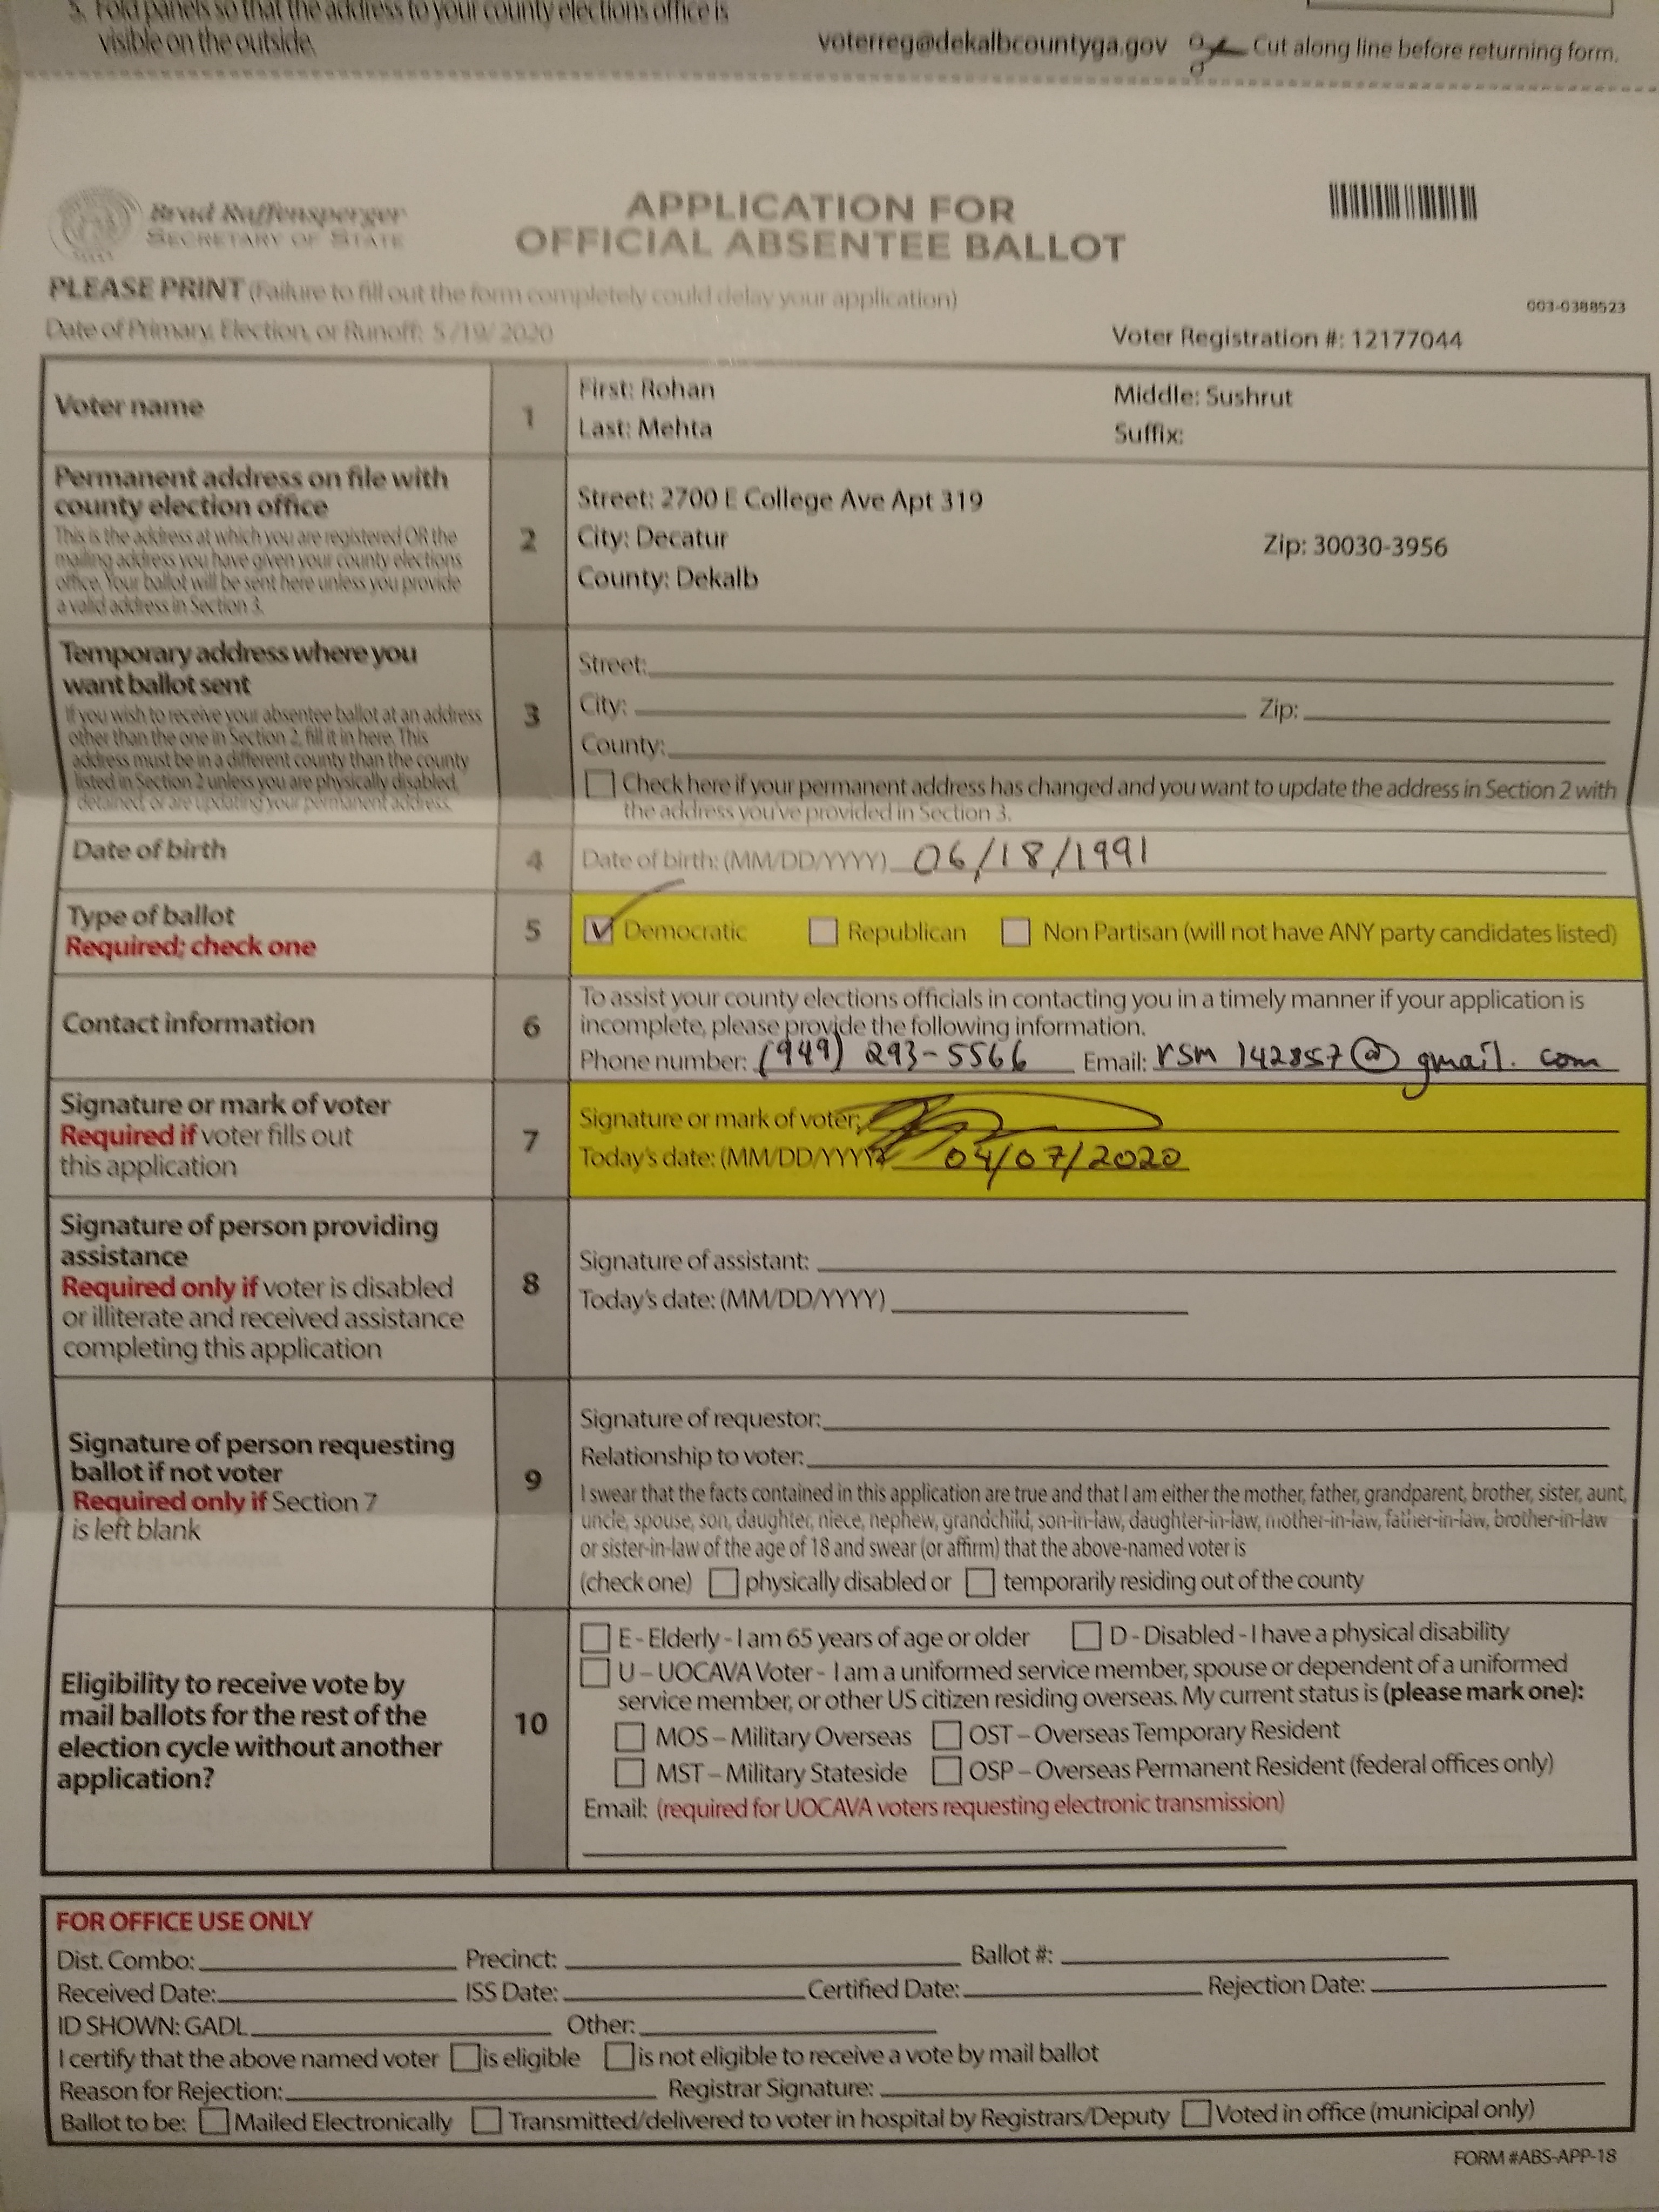 5. Fold panels so that the address to your county elections office is
visible on the outside.
voterreg@dekalbcountyga.gov Cut along line before returning form.
Brad Raffensperger
SECRETARY OF STATE
APPLICATION FOR
OFFICIAL ABSENTEE BALLOT
PLEASE PRINT (Failure to fill out the form completely could delay your application)
003-0388523
Date of Primary, Election, or Runoff: 5/19/2020
Voter Registration #: 12177044
Voter name
1
First: Rohan Middle: Sushrut
Last: Mehta Suffix:
Permanent address on file with
county election office
This is the address at which you are registered OR the
mailing address you have given your county elections
office. Your ballot will be sent here unless you provide
a valid address in Section 3.
2
Street: 2700 E College Ave Apt 319
City: Decatur Zip: 30030-3956
County: Dekalb
Temporary address where you
want ballot sent
If you wish to receive your absentee ballot at an address
other than the one in Section 2, fill it in here. This
address must be in a different county than the county
listed in Section 2 unless you are physically disabled,
detained, or are updating your permanent address.
3
Street:
City: Zip:
County:
Check here if your permanent address has changed and you want to update the address in Section 2 with
the address you've provided in Section 3.
Date of birth
4
Date of birth: (MM/DD/YYYY) 06/18/1991
Type of ballot
Required; check one
5
Democratic Republican Non Partisan (will not have ANY party candidates listed)
Contact information
6
To assist your county elections officials in contacting you in a timely manner if your application is
incomplete, please provide the following information.
Phone number: (949) 293-5566 Email: rsm142857@gmail.com
Signature or mark of voter
Required if voter fills out
this application
7
Signature or mark of voter:
Today's date: (MM/DD/YYYY) 04/07/2020
Signature of person providing
assistance
Required only if voter is disabled
or illiterate and received assistance
completing this application
8
Signature of assistant:
Today's date: (MM/DD/YYYY)
Signature of person requesting
ballot if not voter
Required only if Section 7
is left blank
9
Signature of requestor:
Relationship to voter:
I swear that the facts contained in this application are true and that I am either the mother, father, grandparent, brother, sister, aunt,
uncle, spouse, son, daughter, niece, nephew, grandchild, son-in-law, daughter-in-law, mother-in-law, father-in-law, brother-in-law
or sister-in-law of the age of 18 and swear (or affirm) that the above-named voter is
(check one) physically disabled or temporarily residing out of the county
Eligibility to receive vote by
mail ballots for the rest of the
election cycle without another
application?
10
E - Elderly - I am 65 years of age or older D - Disabled - I have a physical disability
U – UOCAVA Voter - I am a uniformed service member, spouse or dependent of a uniformed
service member, or other US citizen residing overseas. My current status is (please mark one):
MOS – Military Overseas OST – Overseas Temporary Resident
MST – Military Stateside OSP – Overseas Permanent Resident (federal offices only)
Email: (required for UOCAVA voters requesting electronic transmission)
FOR OFFICE USE ONLY
Dist. Combo: Precinct: Ballot #:
Received Date: ISS Date: Certified Date: Rejection Date:
ID SHOWN: GADL Other:
I certify that the above named voter is eligible is not eligible to receive a vote by mail ballot
Reason for Rejection: Registrar Signature:
Ballot to be: Mailed Electronically Transmitted/delivered to voter in hospital by Registrars/Deputy Voted in office (municipal only)
FORM #ABS-APP-18